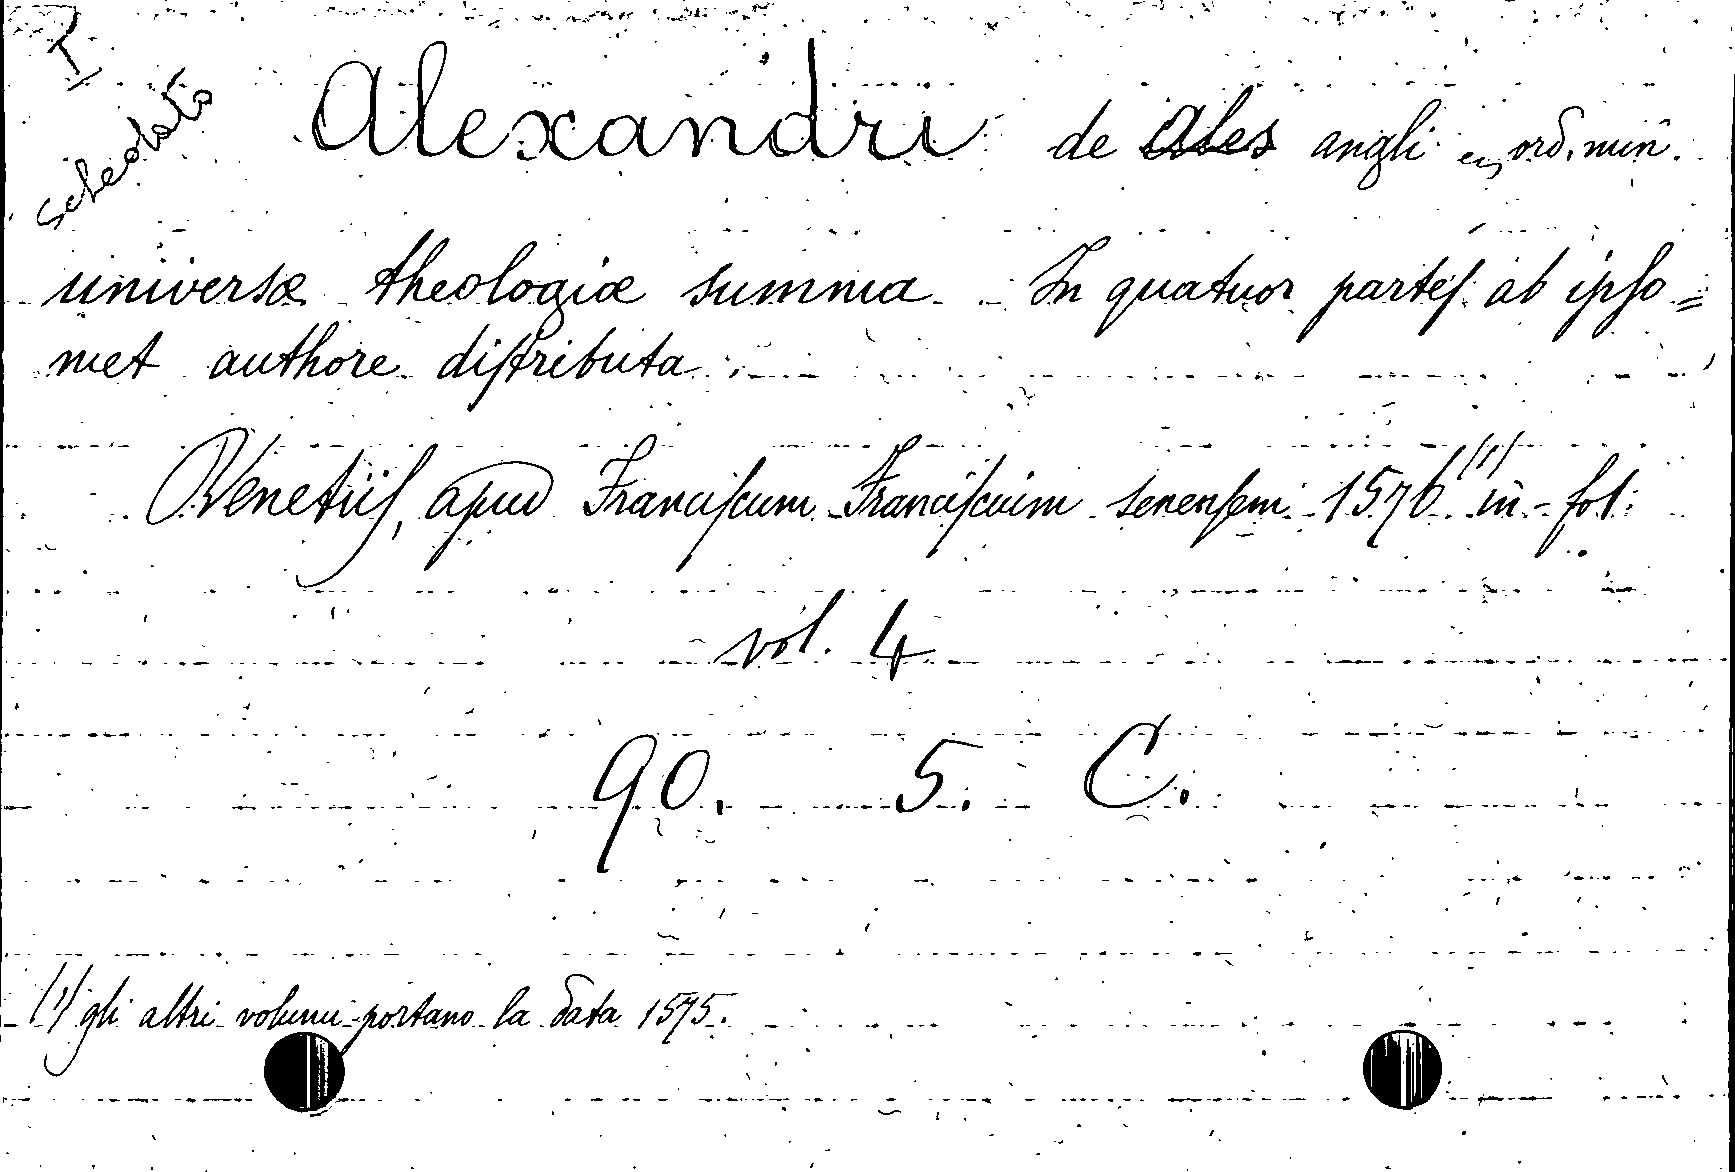 I
schedato
Alexandri de Ales angli ex ord. min.
universæ theologiæ summa. In quatuor parteſ ab ipſo=
met authore diſtributa
Venetiiſ, apud Franciſcum Franciſcium senenſem 1576 (1) in-fol.
vol. 4
90. 5. C.
(1) gli altri volumi portano la data 1575.